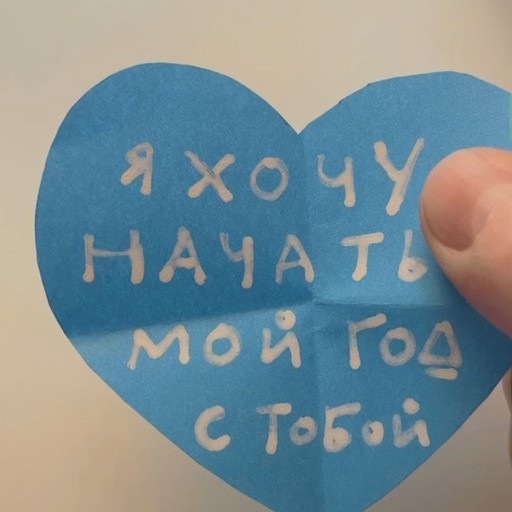 Я ХОЧУ
НАЧАТЬ
МОЙ ГОД
С ТОБОЙ